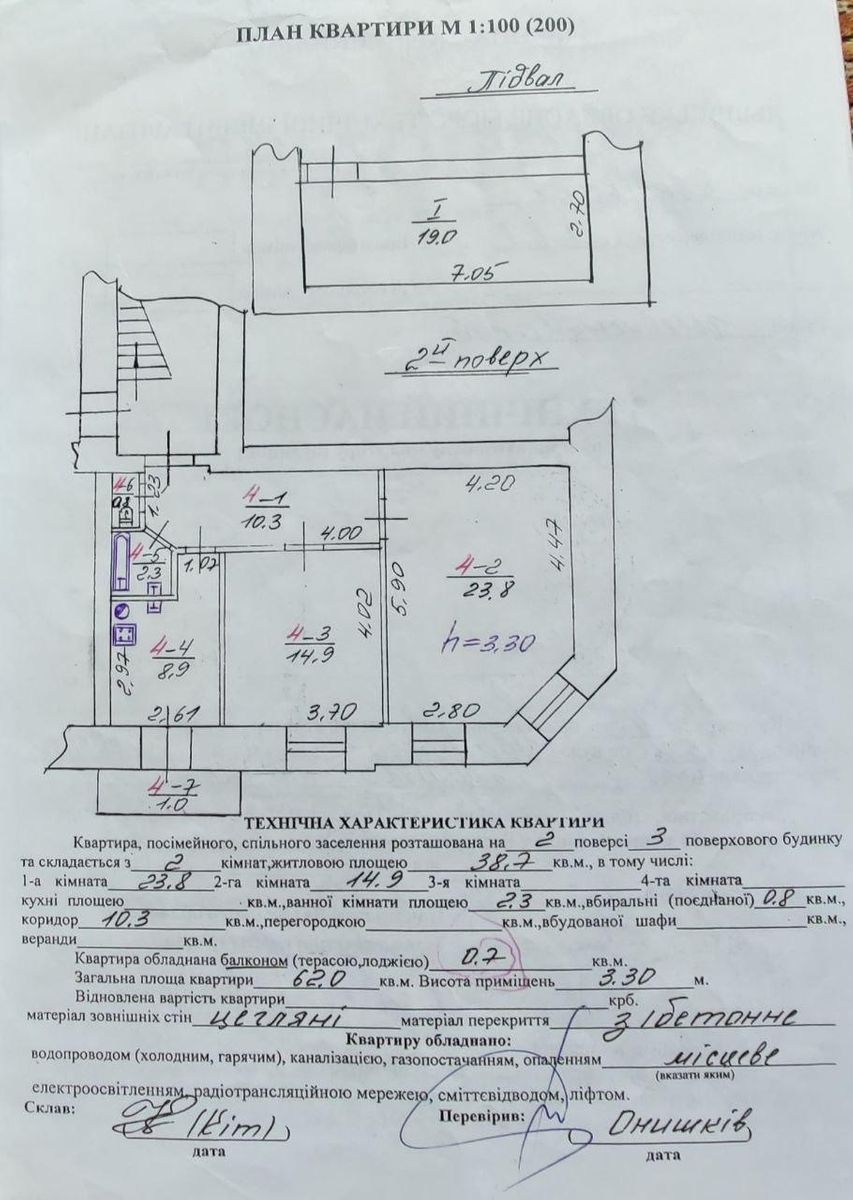 ПЛАН КВАРТИРИ М 1:100 (200)
Підвал
I
19.0
2.70
7.05
2й поверх
4-6
0.8
1.23
4-1
10.3
4.00
4.20
4.47
4-5
2.3
1.07
4.02
5.90
4-2
23.8
h=3.30
4-3
14.9
4-4
8,9
2,97
2,61
3,70
2.80
4-7
1.0
ТЕХНІЧНА ХАРАКТЕРИСТИКА КВАРТИРИ
Квартира, посімейного, спільного заселення розташована на 2 поверсі 3 поверхового будинку
та складається з 2 кімнат,житловою площею 38,7 кв.м., в тому числі:
1-а кімната 23.8 2-га кімната 14.9 3-я кімната 4-та кімната
кухні площею кв.м.,ванної кімнати площею 2.3 кв.м.,вбиральні (поєднаної) 0.8 кв.м.,
коридор 10.3 кв.м.,перегородкою кв.м.,вбудованої шафи кв.м.,
веранди кв.м.
Квартира обладнана балконом (терасою,лоджією) 0.7 кв.м.
Загальна площа квартири 62.0 кв.м. Висота приміщень 3.30 м.
Відновлена вартість квартири крб.
матеріал зовнішніх стін цегляні матеріал перекриття з/бетонне
Квартиру обладнано:
водопроводом (холодним, гарячим), каналізацією, газопостачанням, опаленням місцеве
(вказати яким)
електроосвітленням, радіотрансляційною мережею, сміттєвідводом, ліфтом.
Склав: (Кіт) Перевірив: Онишків
дата дата